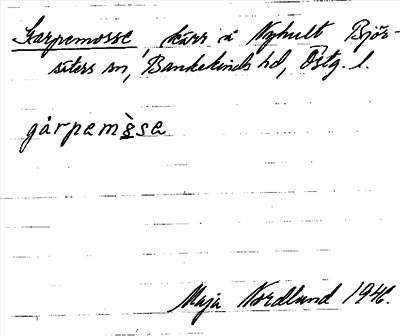 Karpemosse, kärr å Nyhult Björ-
säters sn, Bankekinds hd, Östg. l.
gårpemòse
Maja Nordlund 1946.